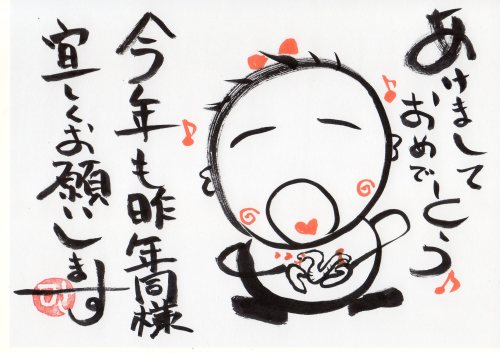 あけまして
おめでとう
今年も昨年同様
宜しくお願いします